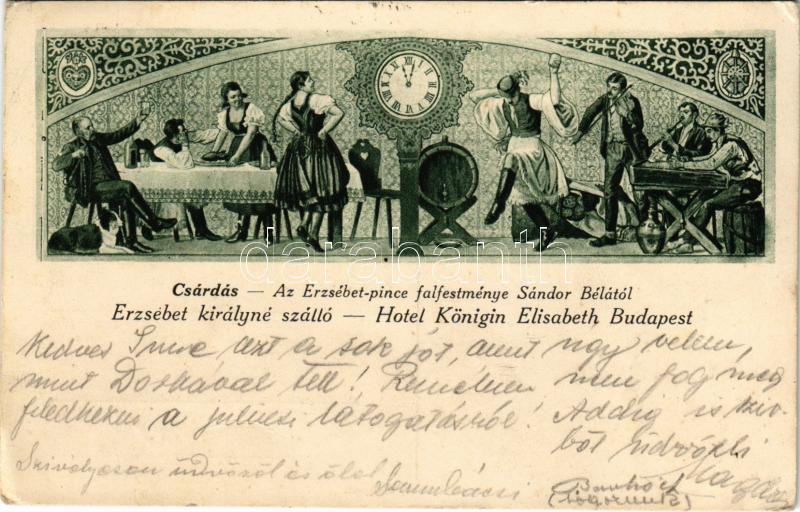 Csárdás — Az Erzsébet-pince falfestménye Sándor Bélától
Erzsébet királyné szálló — Hotel Königin Elisabeth Budapest
darabanth
Kedves Imre azt a sok jót, amit úgy velem,
mint Doskával tett! Remélem nem fog meg
feledkezni a juliusi látogatásról! Addig is szív-
ből üdvözli
Magda
Szívélyesen üdvözöl és ölel